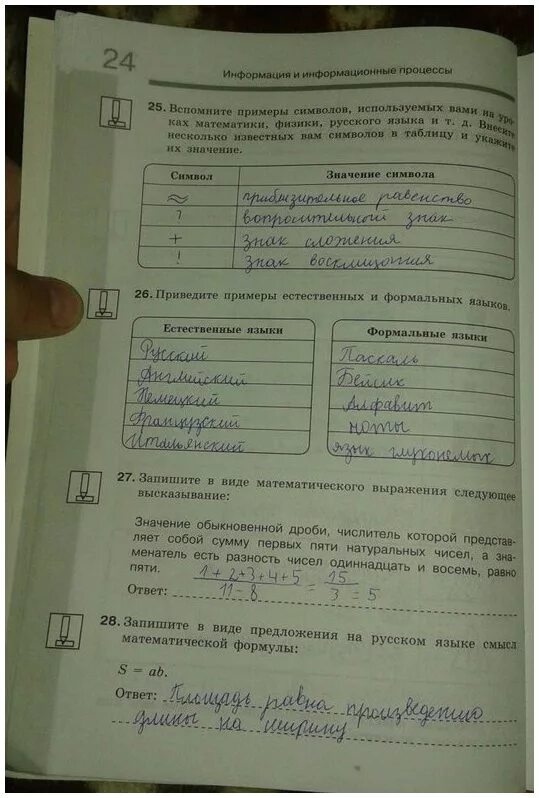 24
Информация и информационные процессы
25. Вспомните примеры символов, используемых вами на уро-
ках математики, физики, русского языка и т. д. Внесите
несколько известных вам символов в таблицу и укажите
их значение.
Символ Значение символа
≈ приблизительное равенство
? вопросительный знак
+ знак сложения
! знак восклицания
26. Приведите примеры естественных и формальных языков.
Естественные языки Формальные языки
Русский Паскаль
Английский Бейсик
Немецкий Алфавит
Французский ноты
Итальянский язык глухонемых
27. Запишите в виде математического выражения следующее
высказывание:
Значение обыкновенной дроби, числитель которой представ-
ляет собой сумму первых пяти натуральных чисел, а зна-
менатель есть разность чисел одиннадцать и восемь, равно
пяти.
1+2+3+4+5 = 15
Ответ: 11-8 3 = 5
28. Запишите в виде предложения на русском языке смысл
математической формулы:
S = ab.
Ответ: Площадь равна произведению
длины на ширину